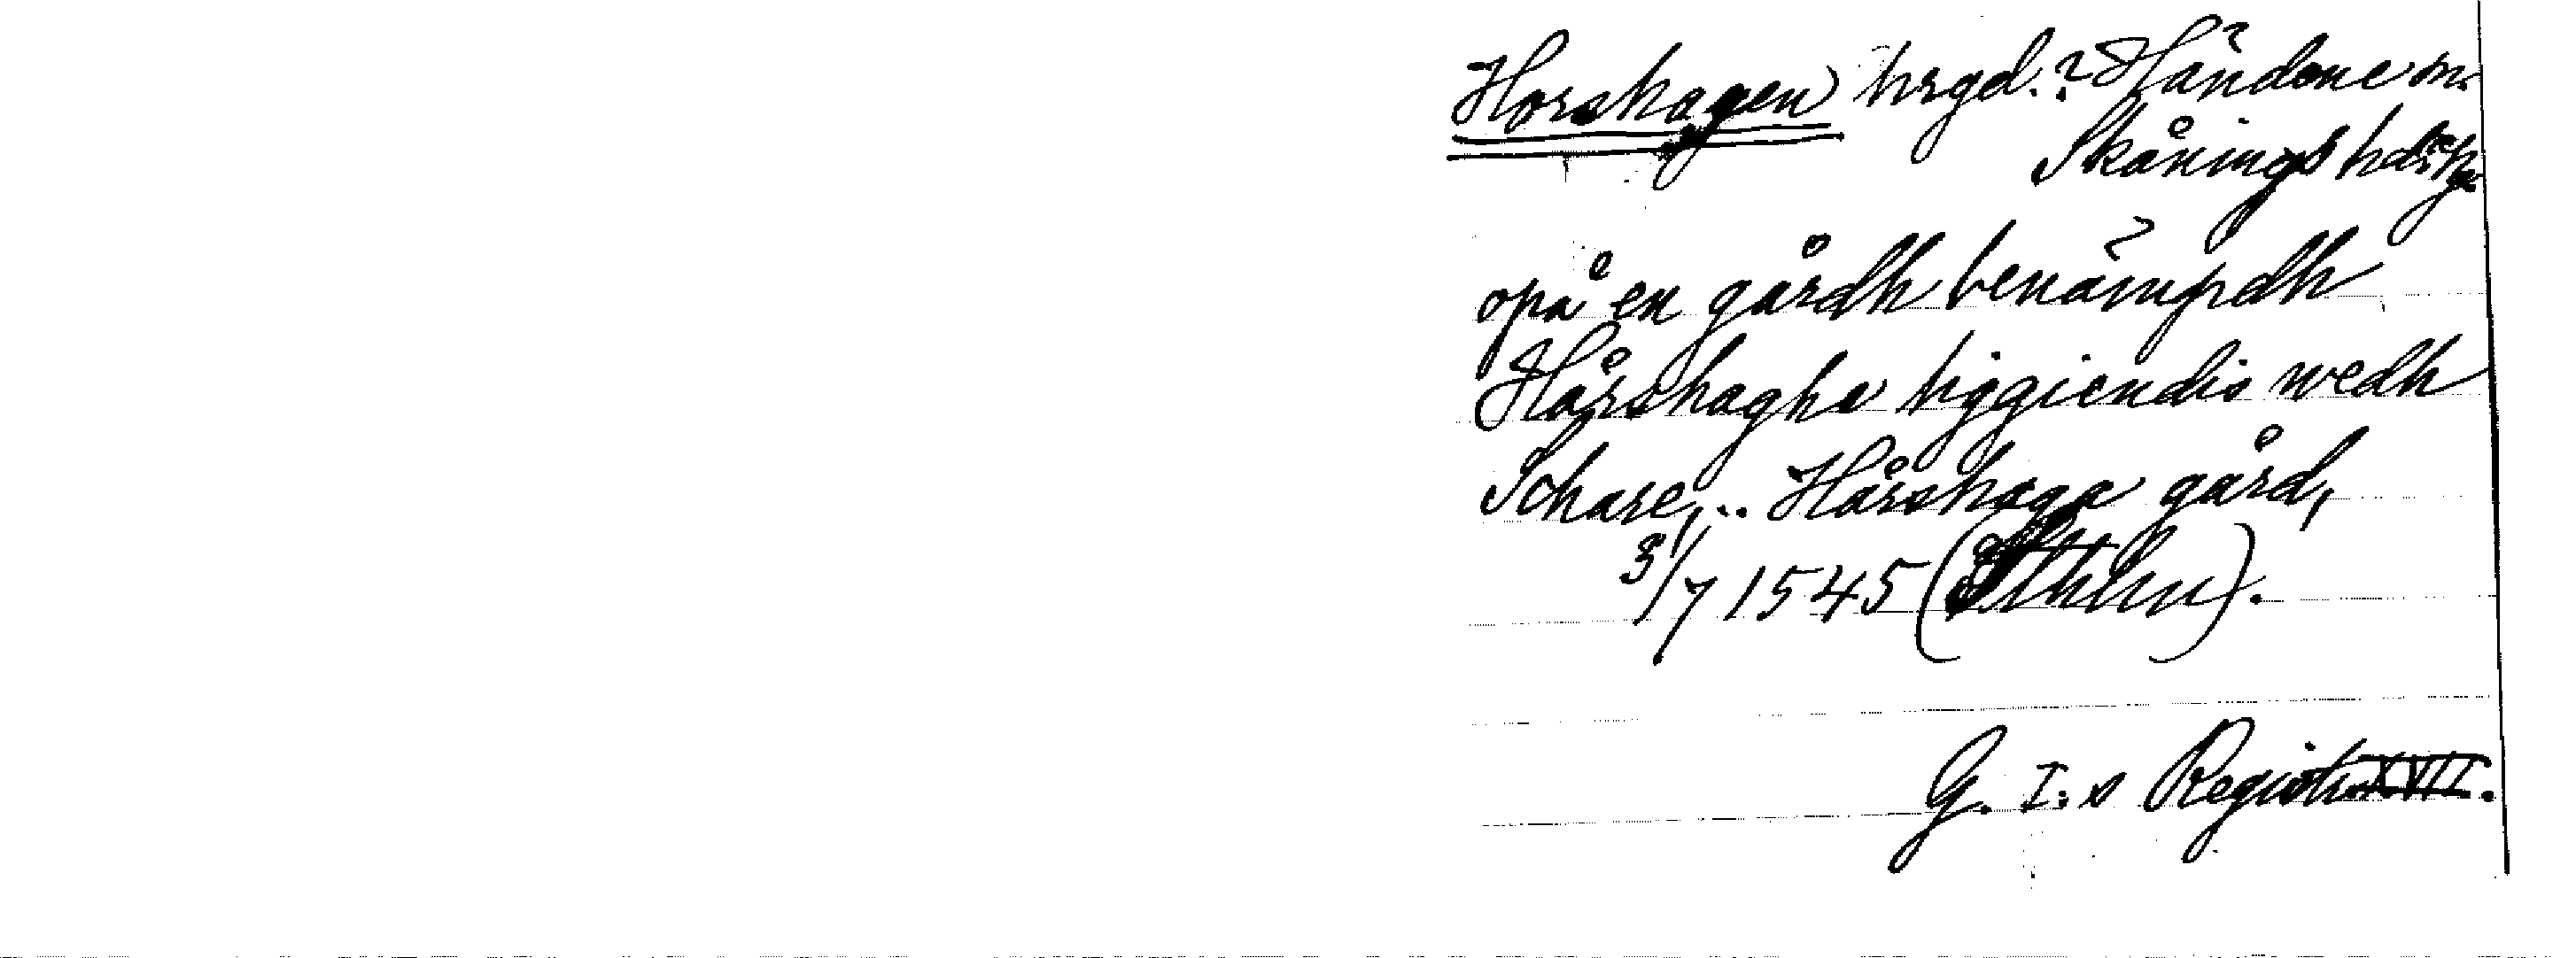 Horshagen hrgd.? Händene sn.
Skånings hd.
opå en gårdh benämpdh
Hårshagha liggiendis wedh
Schare,... Hårshaga gård,
3/7 1545 (Sthlm).
G. I:s Registr. XVII.